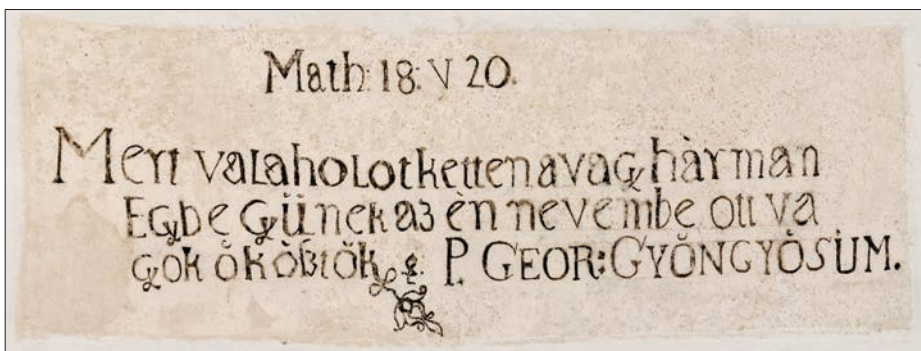 Math: 18: V 20.
Mert valaholot ketten avagy hàrman
Egybe gyünek az èn nevembe ott va
gyok ők ö̀ßtök P. GEOR: GYŐNGYŐSIUM.